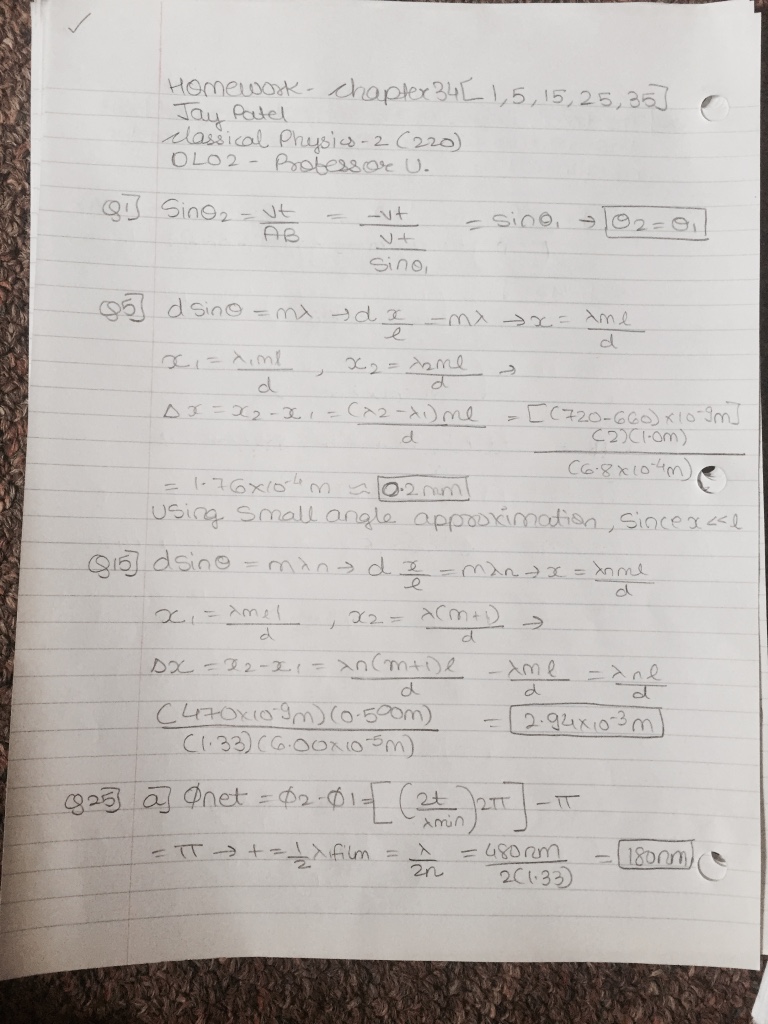 Homework - Chapter 34 [1, 5, 15, 25, 35]
Jay Patel
Classical Physics - 2 (220)
OL02 - Professor U.
Q1] Sinθ₂ = vt/AB = -vt/(vt/sinθ₁) = sinθ₁ → θ₂ = θ₁
Q5] d sinθ = mλ → d x/l = mλ → x = λml/d
x₁ = λ₁ml/d , x₂ = λ₂ml/d →
Δx = x₂ - x₁ = (λ₂ - λ₁)ml/d = [(720-660)×10⁻⁹m](2)(1.0m)/(6.8×10⁻⁴m)
= 1.76×10⁻⁴ m ≈ 0.2mm
Using small angle approximation, since x<<l
Q15] d sinθ = mλn → d x/l = mλn → x = λnml/d
x₁ = λmel/d , x₂ = λ(m+1)/d →
Δx = x₂ - x₁ = λn(m+1)l/d - λml/d = λnl/d
(470×10⁻⁹m)(0.500m)/(1.33)(6.00×10⁻⁵m) = 2.94×10⁻³m
Q25] a] Φnet = Φ2-Φ1 = [(2t/λmin)2π] - π
= π → t = ½ λfilm = λ/2n = 480nm/2(1.33) = 180nm